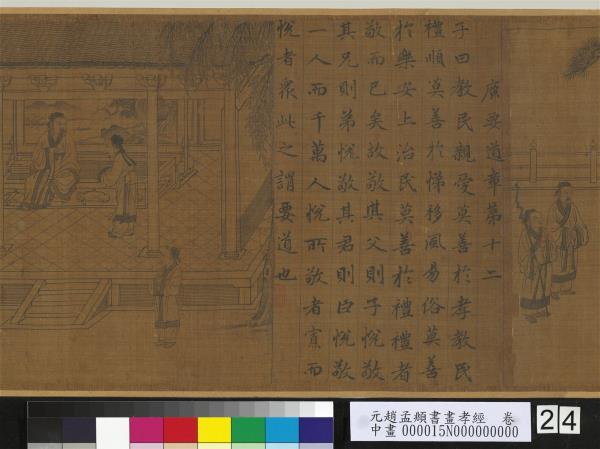 廣要道章第十二
子曰教民親愛莫善於孝教民
禮順莫善於悌移風易俗莫善
於樂安上治民莫善於禮禮者
敬而已矣故敬其父則子悅敬
其兄則弟悅敬其君則臣悅敬
一人而千萬人悅所敬者寡而
悅者衆此之謂要道也
元趙孟頫書畫孝經 卷
中畫000015N000000000
24